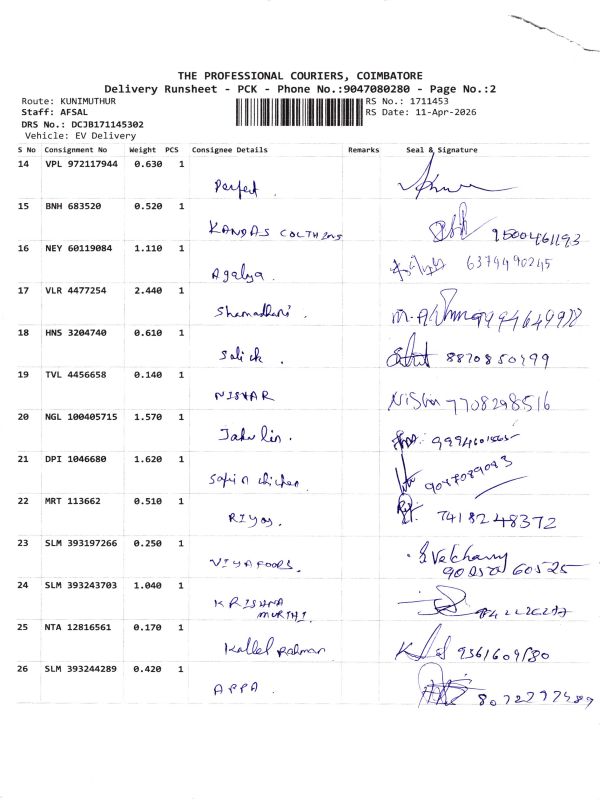 THE PROFESSIONAL COURIERS, COIMBATORE
Delivery Runsheet - PCK - Phone No.:9047080280 - Page No.:2
Route: KUNIMUTHUR RS No.: 1711453
Staff: AFSAL RS Date: 11-Apr-2026
DRS No.: DCJB171145302
Vehicle: EV Delivery
S No Consignment No Weight PCS Consignee Details Remarks Seal & Signature
14 VPL 972117944 0.630 1
Perfect.
15 BNH 683520 0.520 1
KANDAS 9500461193
16 NEY 60119084 1.110 1
Agalya. 6379490245
17 VLR 4477254 2.440 1
Shamadhani.
18 HNS 3204740 0.610 1
Salick. 8870850499
19 TVL 4456658 0.140 1
NISHAR 7708298516
20 NGL 100405715 1.570 1
21 DPI 1046680 1.620 1
chicken
22 MRT 113662 0.510 1
RIYas. 7418248372
23 SLM 393197266 0.250 1
VIYA FOODS. 60525
24 SLM 393243703 1.040 1
KRISHNA
MURTHI.
25 NTA 12816561 0.170 1
Rahman
26 SLM 393244289 0.420 1
APPA.